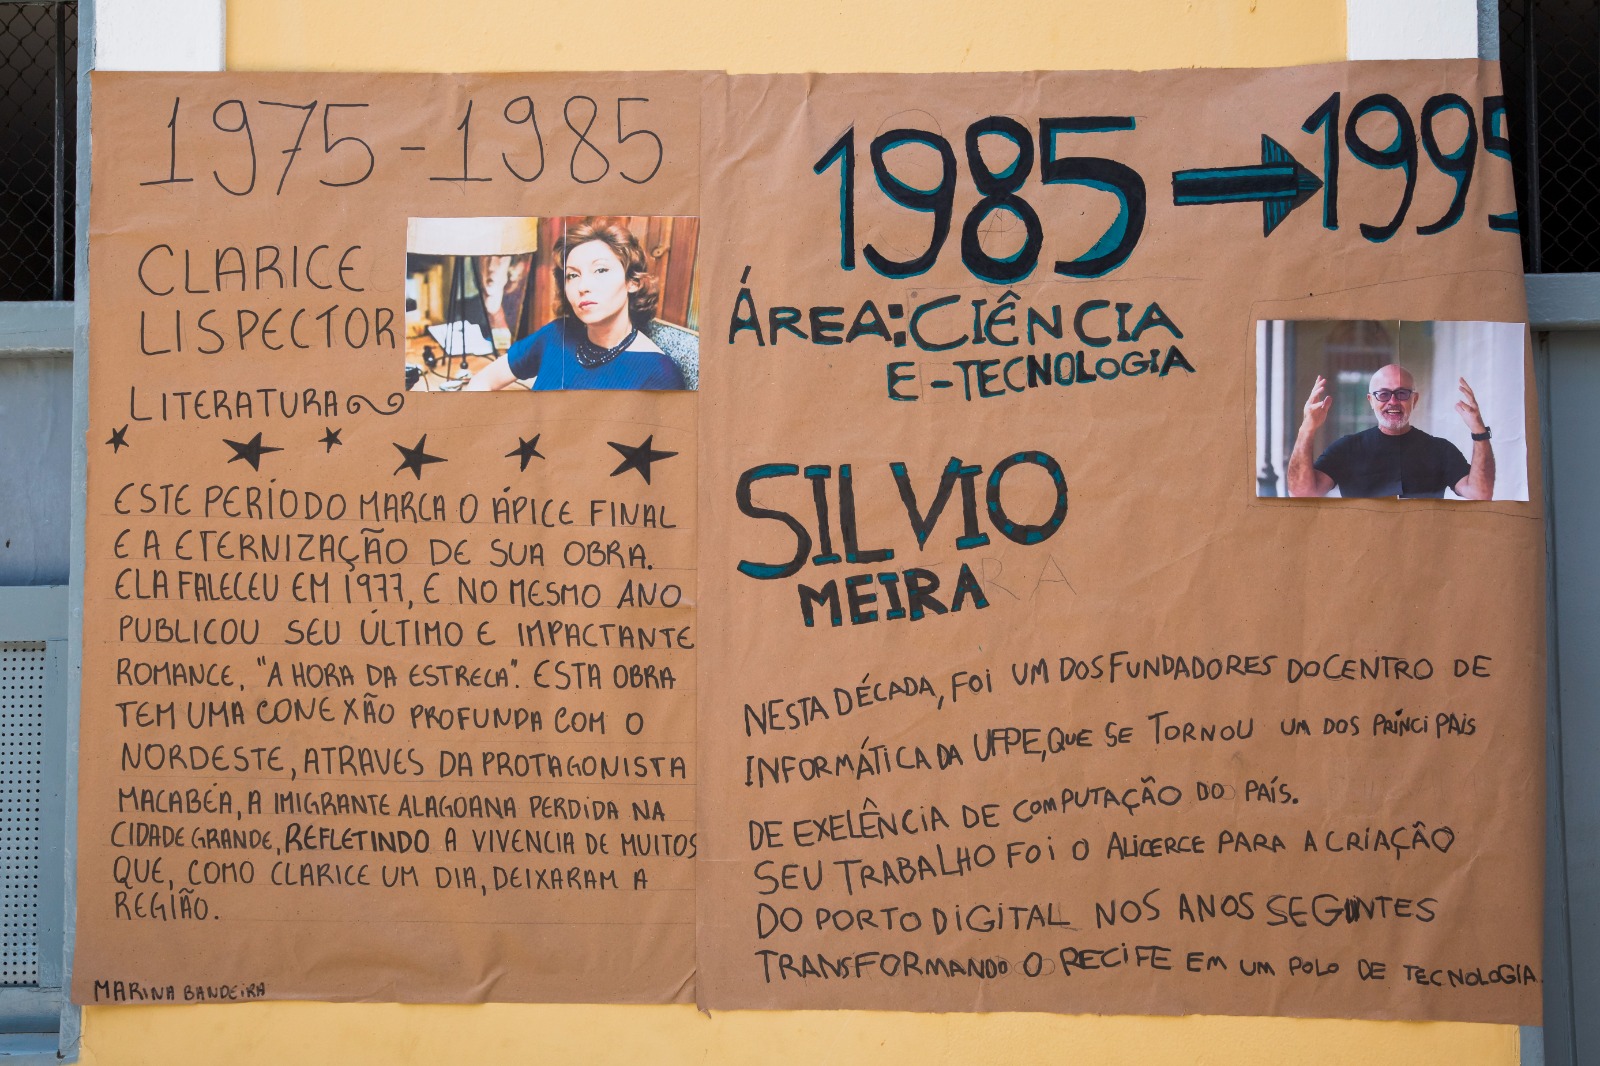 1975-1985
CLARICE
LISPECTOR
LITERATURA
ESTE PERÍODO MARCA O ÁPICE FINAL
E A ETERNIZAÇÃO DE SUA OBRA.
ELA FALECEU EM 1977, E NO MESMO ANO
PUBLICOU SEU ÚLTIMO E IMPACTANTE
ROMANCE, "A HORA DA ESTRELA". ESTA OBRA
TEM UMA CONEXÃO PROFUNDA COM O
NORDESTE, ATRAVES DA PROTAGONISTA
MACABÉA, A IMIGRANTE ALAGOANA PERDIDA NA
CIDADE GRANDE, REFLETINDO A VIVENCIA DE MUITOS
QUE, COMO CLARICE UM DIA, DEIXARAM A
REGIÃO.
MARINA BANDEIRA
1985 → 1995
ÁREA: CIÊNCIA
E-TECNOLOGIA
SILVIO
MEIRA
NESTA DÉCADA, FOI UM DOS FUNDADORES DO CENTRO DE
INFORMÁTICA DA UFPE, QUE SE TORNOU UM DOS PRINCIPAIS
DE EXELÊNCIA DE COMPUTAÇÃO DO PAÍS.
SEU TRABALHO FOI O ALICERCE PARA A CRIAÇÃO
DO PORTO DIGITAL NOS ANOS SEGUNTES
TRANSFORMANDO O RECIFE EM UM POLO DE TECNOLOGIA